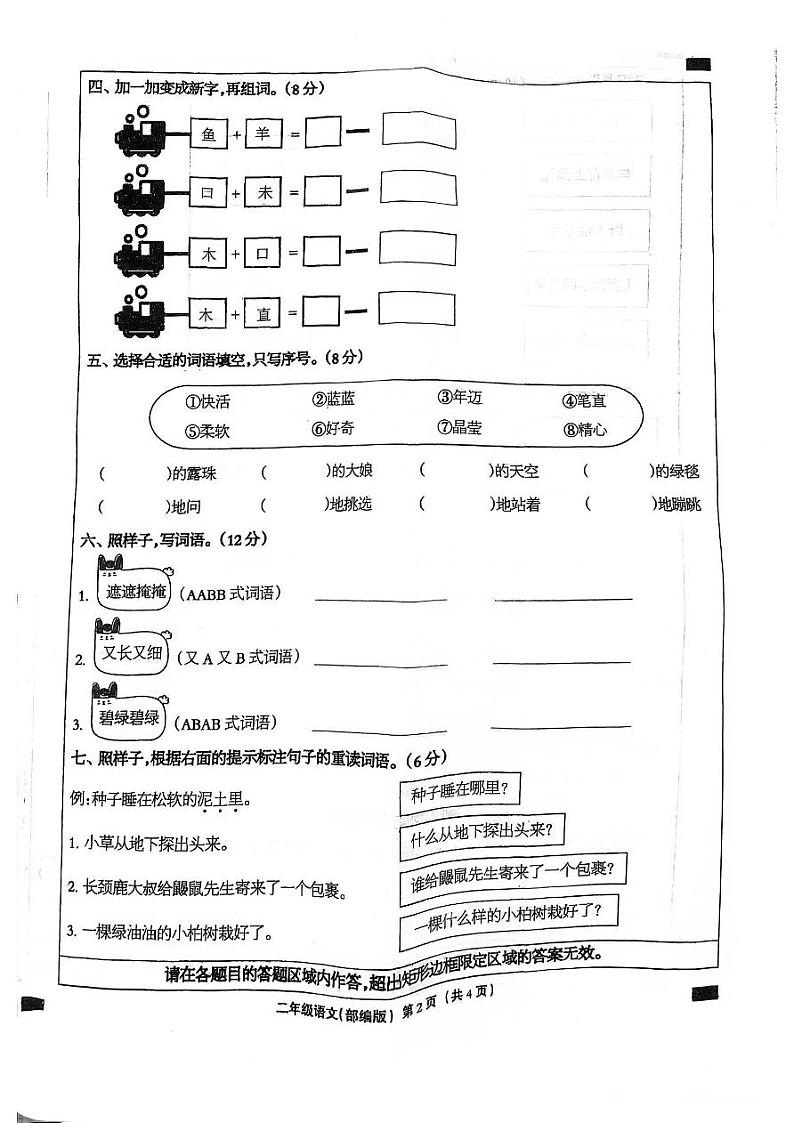 四、加一加变成新字,再组词。(8分)
鱼 + 羊 =
口 + 未 =
木 + 口 =
木 + 直 =
五、选择合适的词语填空,只写序号。(8分)
①快活 ②蓝蓝 ③年迈 ④笔直
⑤柔软 ⑥好奇 ⑦晶莹 ⑧精心
( )的露珠 ( )的大娘 ( )的天空 ( )的绿毯
( )地问 ( )地挑选 ( )地站着 ( )地蹦跳
六、照样子,写词语。(12分)
1. 遮遮掩掩 (AABB 式词语)
2. 又长又细 (又 A 又 B 式词语)
3. 碧绿碧绿 (ABAB 式词语)
七、照样子,根据右面的提示标注句子的重读词语。(6分)
例:种子睡在松软的泥土里。 种子睡在哪里?
1. 小草从地下探出头来。 什么从地下探出头来?
2. 长颈鹿大叔给鼹鼠先生寄来了一个包裹。 谁给鼹鼠先生寄来了一个包裹?
3. 一棵绿油油的小柏树栽好了。 一棵什么样的小柏树栽好了?
请在各题目的答题区域内作答,超出矩形边框限定区域的答案无效。
二年级语文(部编版) 第2页 (共4页)